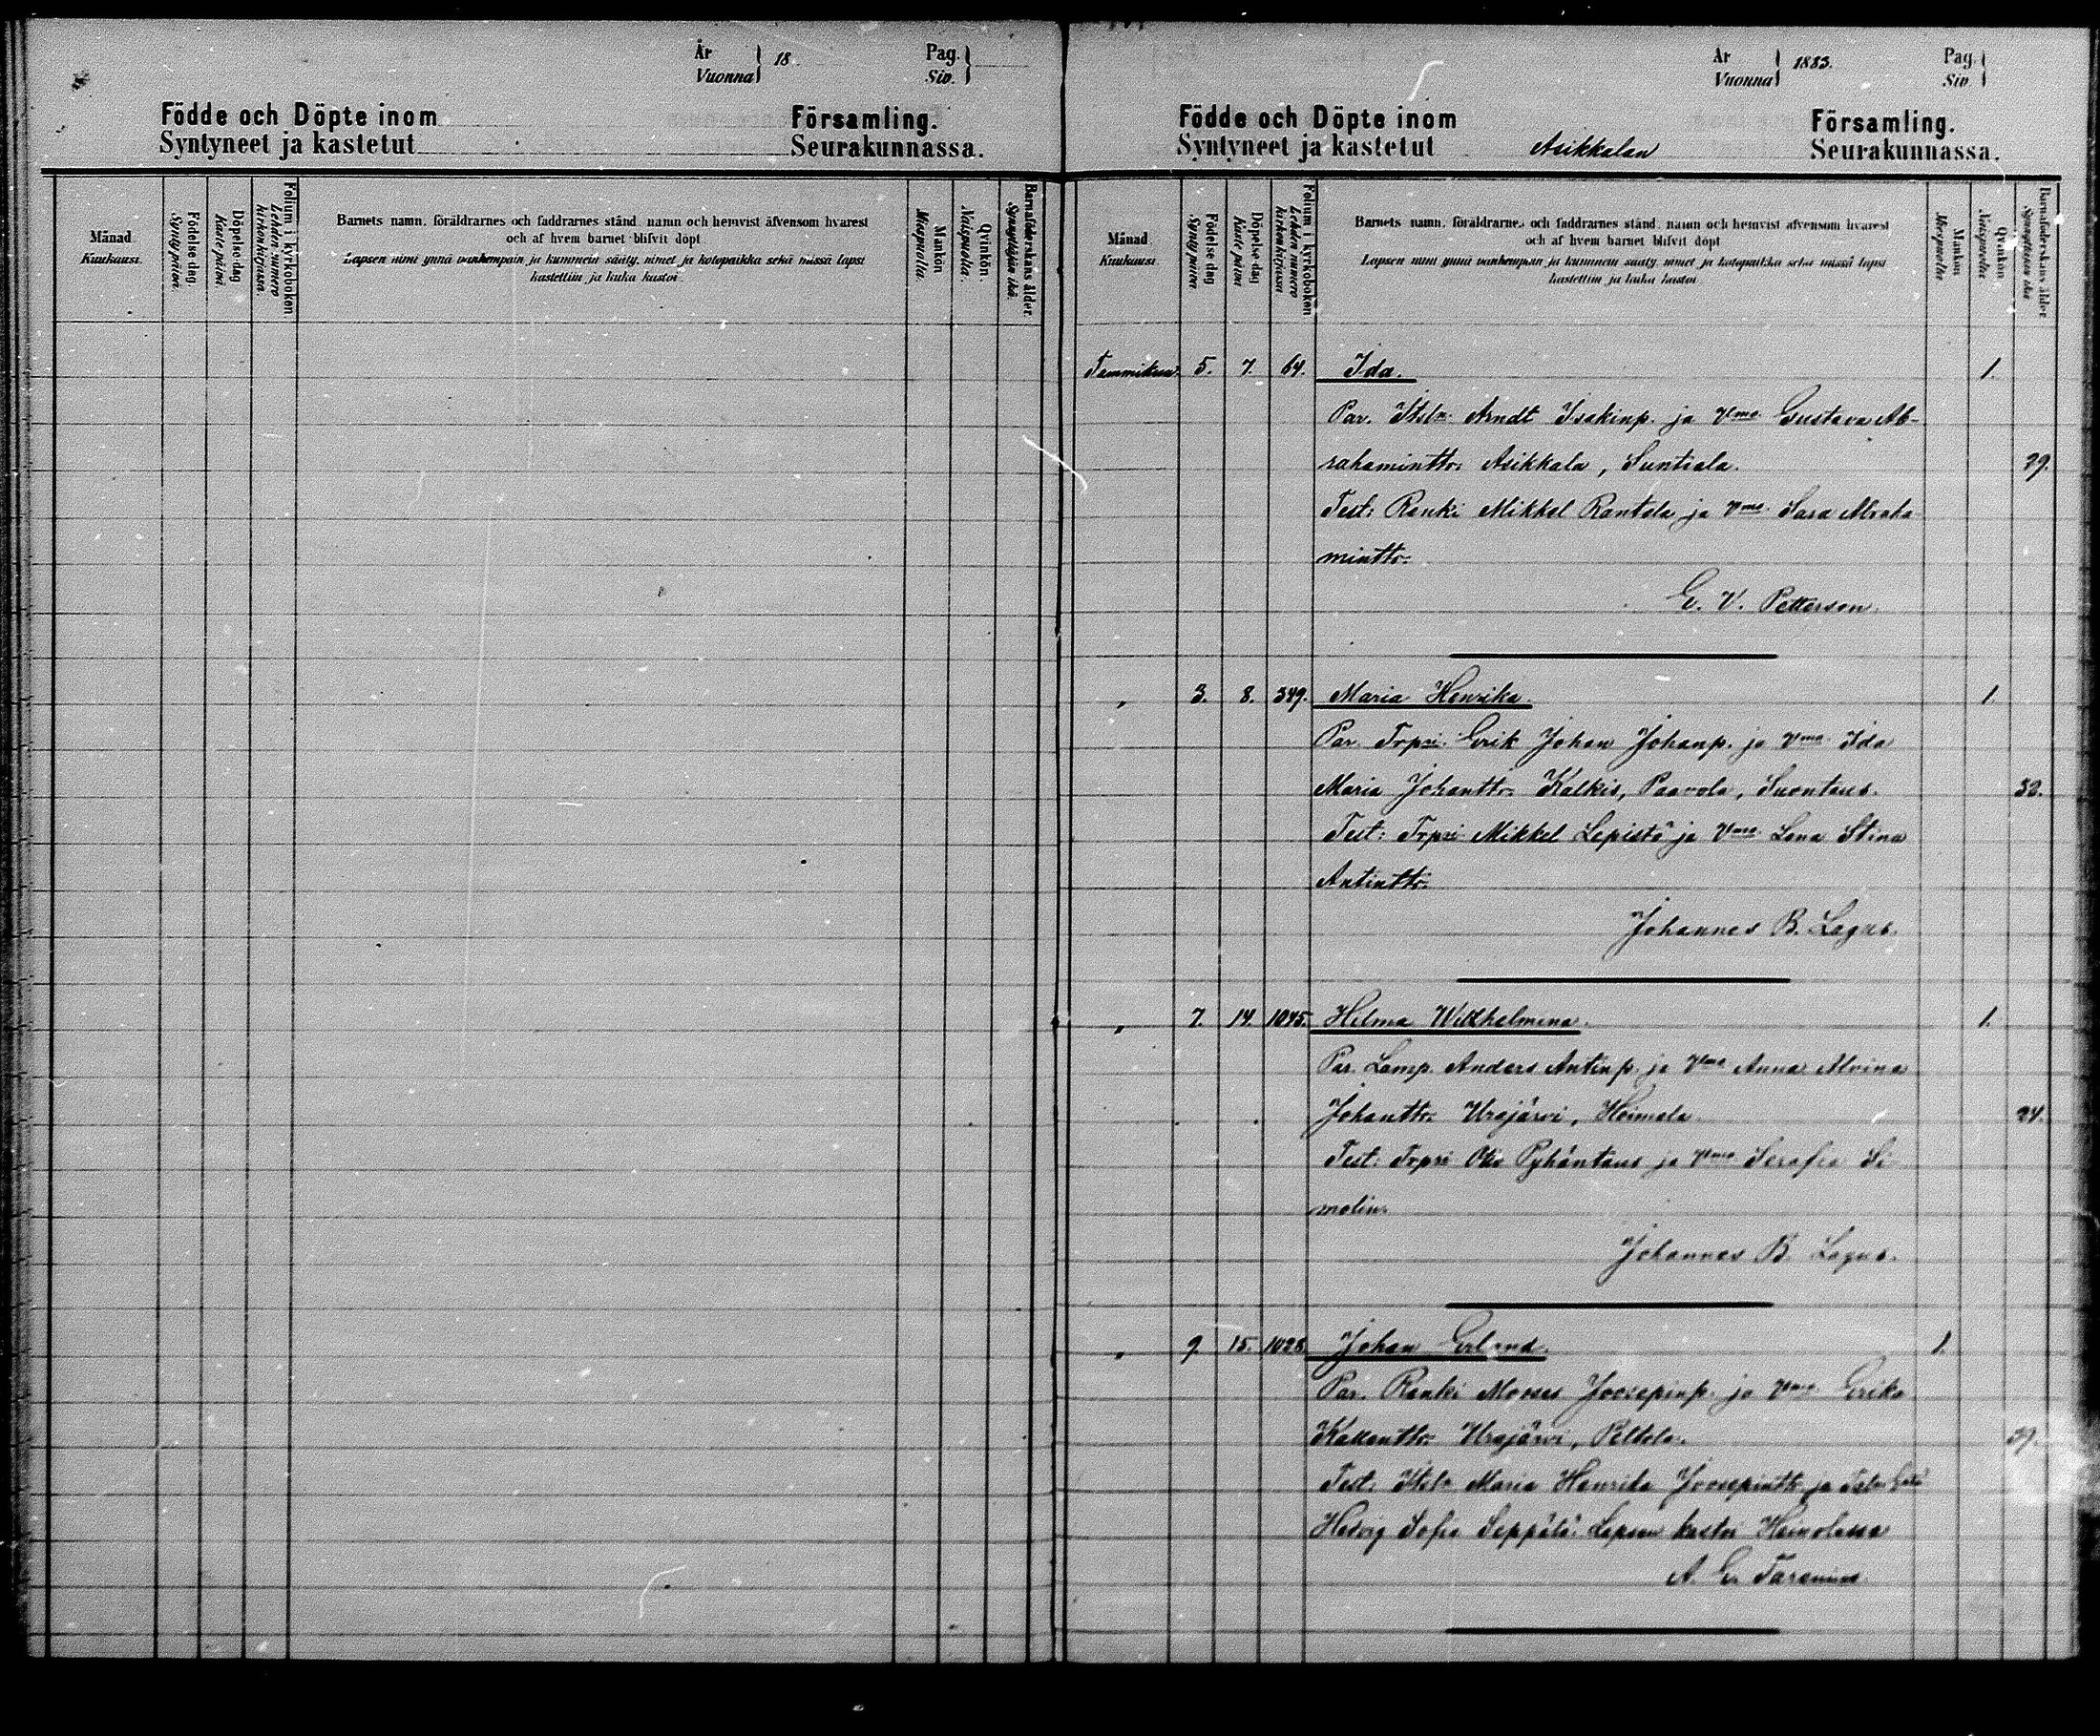 År
Vuonna } 18
Pag.
Siv. }
Födde och Döpte inom
Syntyneet ja kastetut
Församling.
Seurakunnassa.
Månad
Kuukausi.
Födelse dag.
Synty päivä.
Döpelse dag
Kaste päivä.
Folium i kyrkoboken
Lehden numero
kirkonkirjassa.
Barnets namn, föräldrarnes och faddrarnes stånd, namn och hemvist äfvensom hvarest
och af hvem barnet blifvit döpt
Lapsen nimi ynnä vanhempain ja kummein sääty, nimet ja kotopaikka sekä missä lapsi
kastettiin ja kuka kastoi.
Mankön
Miespuolia.
Qvinkön.
Naispuolia.
Barnaföderskans ålder.
Synnyttäjän ikä.
År
Vuonna } 1883.
Pag.
Siv. }
Födde och Döpte inom
Syntyneet ja kastetut Asikkalan
Församling.
Seurakunnassa.
Månad
Kuukausi.
Födelse dag
Synty päivä
Döpelse dag
Kaste päivä
Folium i kyrkoboken
Lehden numero
kirkonkirjassa
Barnets namn, föräldrarnes och faddrarnes stånd, namn och hemvist äfvensom hvarest
och af hvem barnet blifvit döpt
Lapsen nimi ynnä vanhempain ja kummein sääty, nimet ja kotopaikka sekä missä lapsi
kastettiin ja kuka kastoi
Mankön
Miespuolia
Qvinkön
Naispuolia
Barnaföderskans ålder
Synnyttäjän ikä
Tammikuu. 5. 7. 64. Ida. 1.
Par. Itsln. Arndt Isakinp. ja Vmo. Gustava Ab-
rahamintr. Asikkala, Suntiala. 29.
Test: Renki Mikkel Rantala ja Vmo. Sara Abraha
mintr.
G. V. Petterson.
" 3. 8. 349. Maria Henrika. 1.
Par. Trpri. Erik Johan Johanp. ja Vmo. Ida
Maria Johantr. Kalkis, Paavola, Suontaus. 32.
Test: Trpri Mikkel Lepistö ja Vmo. Lena Stina
Antintr.
Johannes B. Lagus.
" 7. 14. 1045. Hilma Willhelmina. 1.
Par. Lamp. Anders Antinp. ja Vmo Anna Alvina
Johantr. Urajärvi, Heimala. 24.
Test: Trpri Otto Pyhäntaus ja Vmo Serafia Si
molin.
Johannes B. Lagus.
" 9. 15. 1028. Johan Erland. 1.
Par. Renki Mooses Joosepinp. ja Vmo. Erika
Kallentr. Urajärvi, Peltola. 39.
Test: Itsln Maria Henrika Joosepintr ja
Hedvig Sofia Seppälä. Lapsen kastoi Heinolassa
A. E. Tarenius.